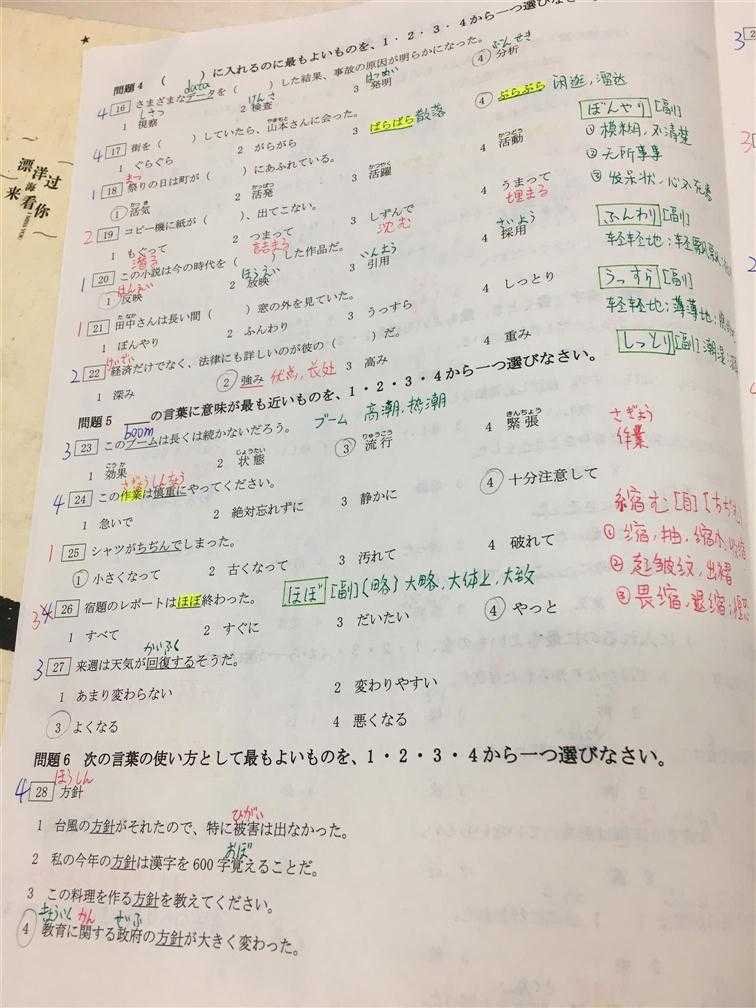 漂洋过
海
来看你
問題4 ( )に入れるのに最もよいものを、1・2・3・4から一つ選びなさい
data
4 16 さまざまなデータを( )した結果、事故の原因が明らかになった。
しさつ けんさ はつめい ぶんせき
1 視察 2 検査 3 発明 ④ 分析
4 17 街を( )していたら、山本さんに会った。
やまもと
1 ぐらぐら 2 がらがら 3 ばらばら 散落 ④ ぶらぶら 闲逛,溜达
1 18 祭りの日は町が( )にあふれている。
まつ
かっき かっぱつ かつやく かつどう
① 活気 2 活発 3 活躍 4 活動
2 19 コピー機に紙が( )、出てこない。
1 もぐって 2 つまって 3 しずんで 4 うまって
潜る 詰まる 沈む 埋まる
1 20 この小説は今の時代を( )した作品だ。
はんえい ほうえい いんよう さいよう
① 反映 2 放映 3 引用 4 採用
1 21 田中さんは長い間( )窓の外を見ていた。
たなか
1 ぼんやり 2 ふんわり 3 うっすら 4 しっとり
2 22 経済だけでなく、法律にも詳しいのが彼の( )だ。
けいざい
1 深み ② 強み 优点,长处 3 高み 4 重み
ぼんやり [副]
① 模糊,不清楚
② 无所事事
③ 发呆状,心不在焉
ふんわり [副]
轻轻地;
うっすら [副]
轻轻地;薄薄地;
しっとり [副] 潮湿
問題5 の言葉に意味が最も近いものを、1・2・3・4から一つ選びなさい。
boom
3 23 このブームは長くは続かないだろう。 ブーム 高潮,热潮
こうか じょうたい りゅうこう きんちょう
1 効果 2 状態 ③ 流行 4 緊張
さぎょう
作業
4 24 この作業は慎重にやってください。
さぎょう しんちょう
1 急いで 2 絶対忘れずに 3 静かに ④ 十分注意して
1 25 シャツがちぢんでしまった。
① 小さくなって 2 古くなって 3 汚れて 4 破れて
縮む [自]
① 缩,抽,缩小
② 起皱纹,出褶
③ 畏缩,退缩;
3 4 26 宿題のレポートはほぼ終わった。 ほぼ [副](略)大略,大体上,大致
1 すべて 2 すぐに 3 だいたい ④ やっと
3 27 来週は天気が回復するそうだ。
かいふく
1 あまり変わらない 2 変わりやすい
③ よくなる 4 悪くなる
問題6 次の言葉の使い方として最もよいものを、1・2・3・4から一つ選びなさい。
ほうしん
4 28 方針
ひがい
1 台風の方針がそれたので、特に被害は出なかった。
おぼ
2 私の今年の方針は漢字を600字覚えることだ。
3 この料理を作る方針を教えてください。
きょういく かん せいふ
④ 教育に関する政府の方針が大きく変わった。